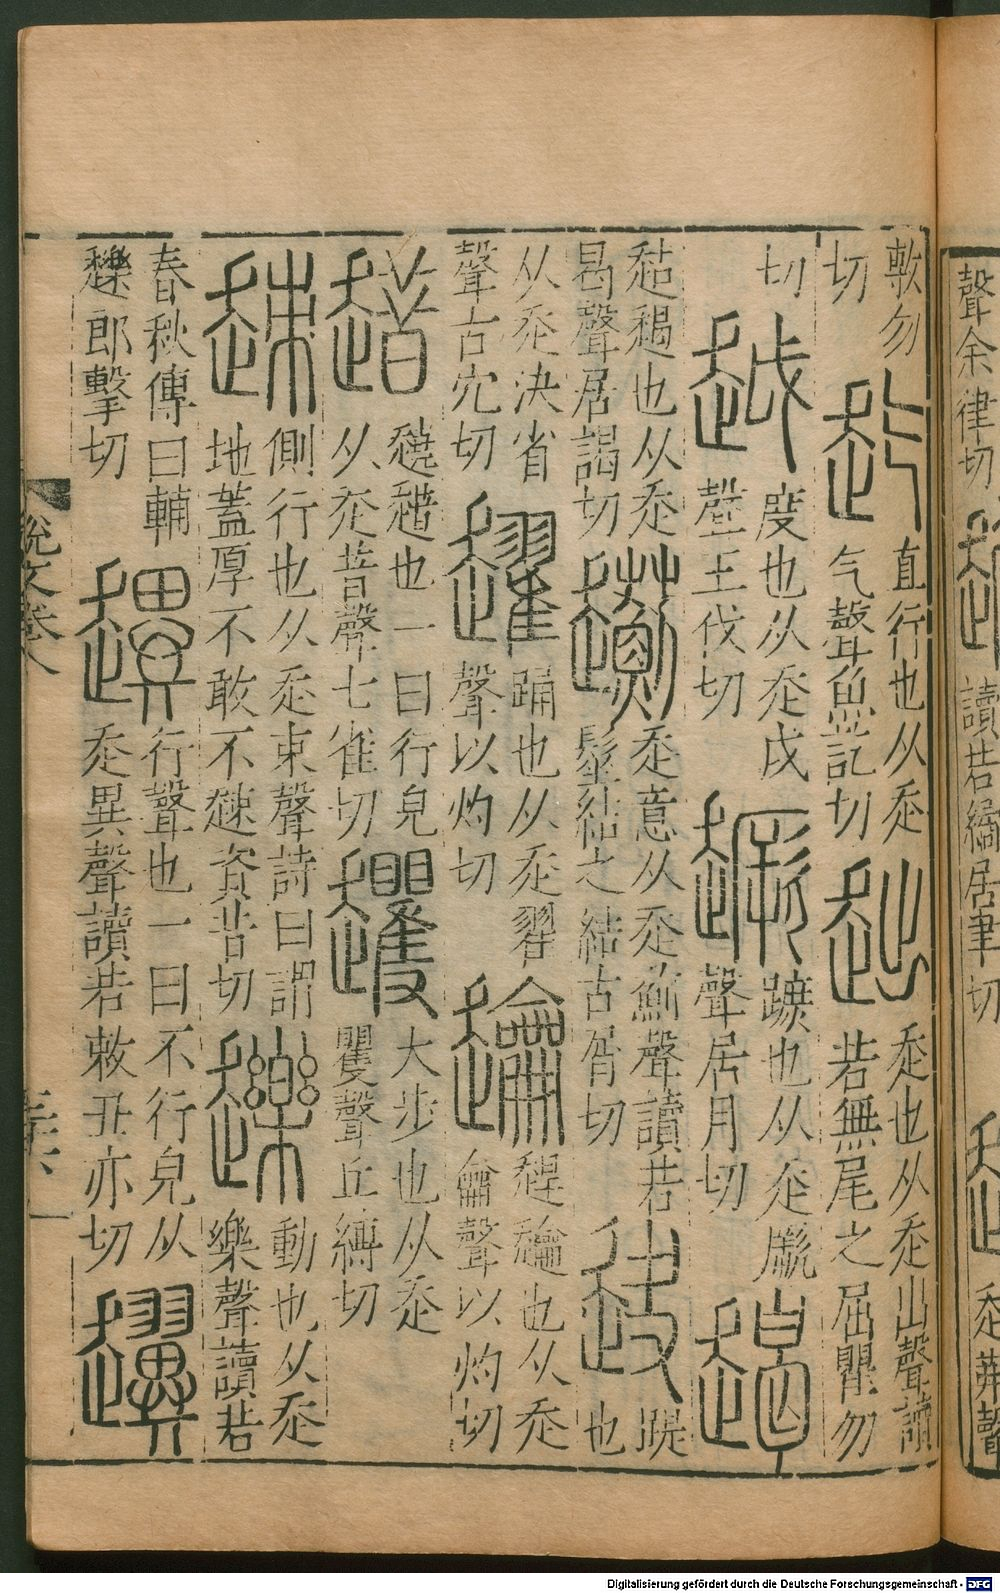 聲余律切
讀若繘居聿切
敕勿
切
赽
直行也从走
气聲魚訖切
𧺺
走也从走出聲讀
若無尾之屈瞿勿
切
越
度也从走戉
聲王伐切
蹶也从走厥
聲居月切
趌趨也从走
曷聲居謁切
走意从走薊聲讀若
髽結之結古屑切
踶
也
从走決省
聲古穴切
趯
踊也从走翟
聲以灼切
趠䠯也从走
龠聲以灼切
趞
趬趞也一曰行皃
从走昔聲七雀切
大步也从走
矍聲丘縛切
趚
側行也从走朿聲詩曰謂
地蓋厚不敢不趚資昔切
動也从走
樂聲讀若
春秋傳曰輔
郎擊切
趩
行聲也一曰不行皃从
走異聲讀若敕丑亦切
說文卷八
Digitalisierung gefördert durch die Deutsche Forschungsgemeinschaft - DFG